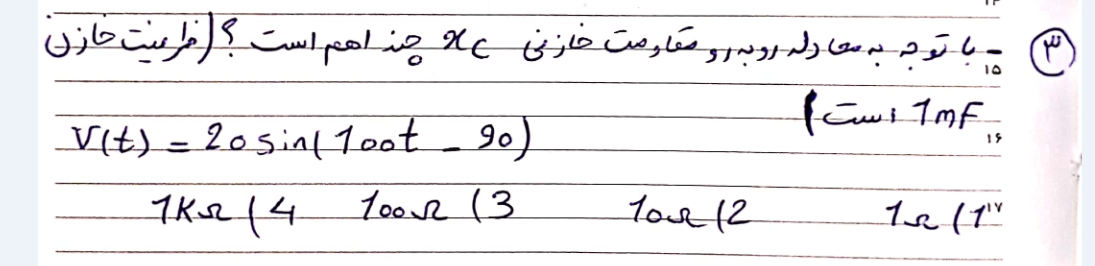 ۳ - با توجه به معادله روبه رو مقاومت خازنی xc چند اهم است ؟ (ظرفیت خازن
۱۵
1mF است)
V(t) = 20 sin(100t - 90)
۱۶
1) 1Ω 2) 10Ω 3) 100Ω 4) 1KΩ
۱۷